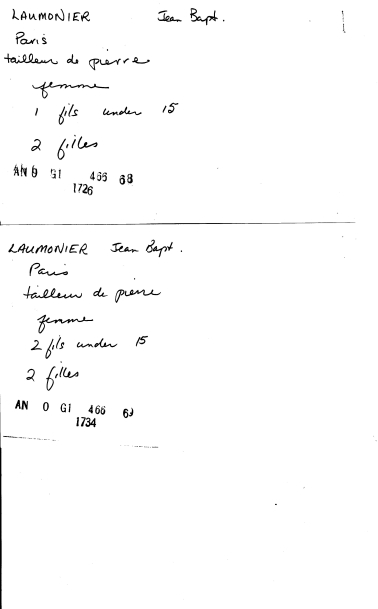 LAUMONIER Jean Bapt.
Paris
tailleur de pierre
femme
1 fils under 15
2 filles
AN 0 G1 466 68
1726
LAUMONIER Jean Bapt.
Paris
tailleur de pierre
femme
2 fils under 15
2 filles
AN 0 G1 466
1734